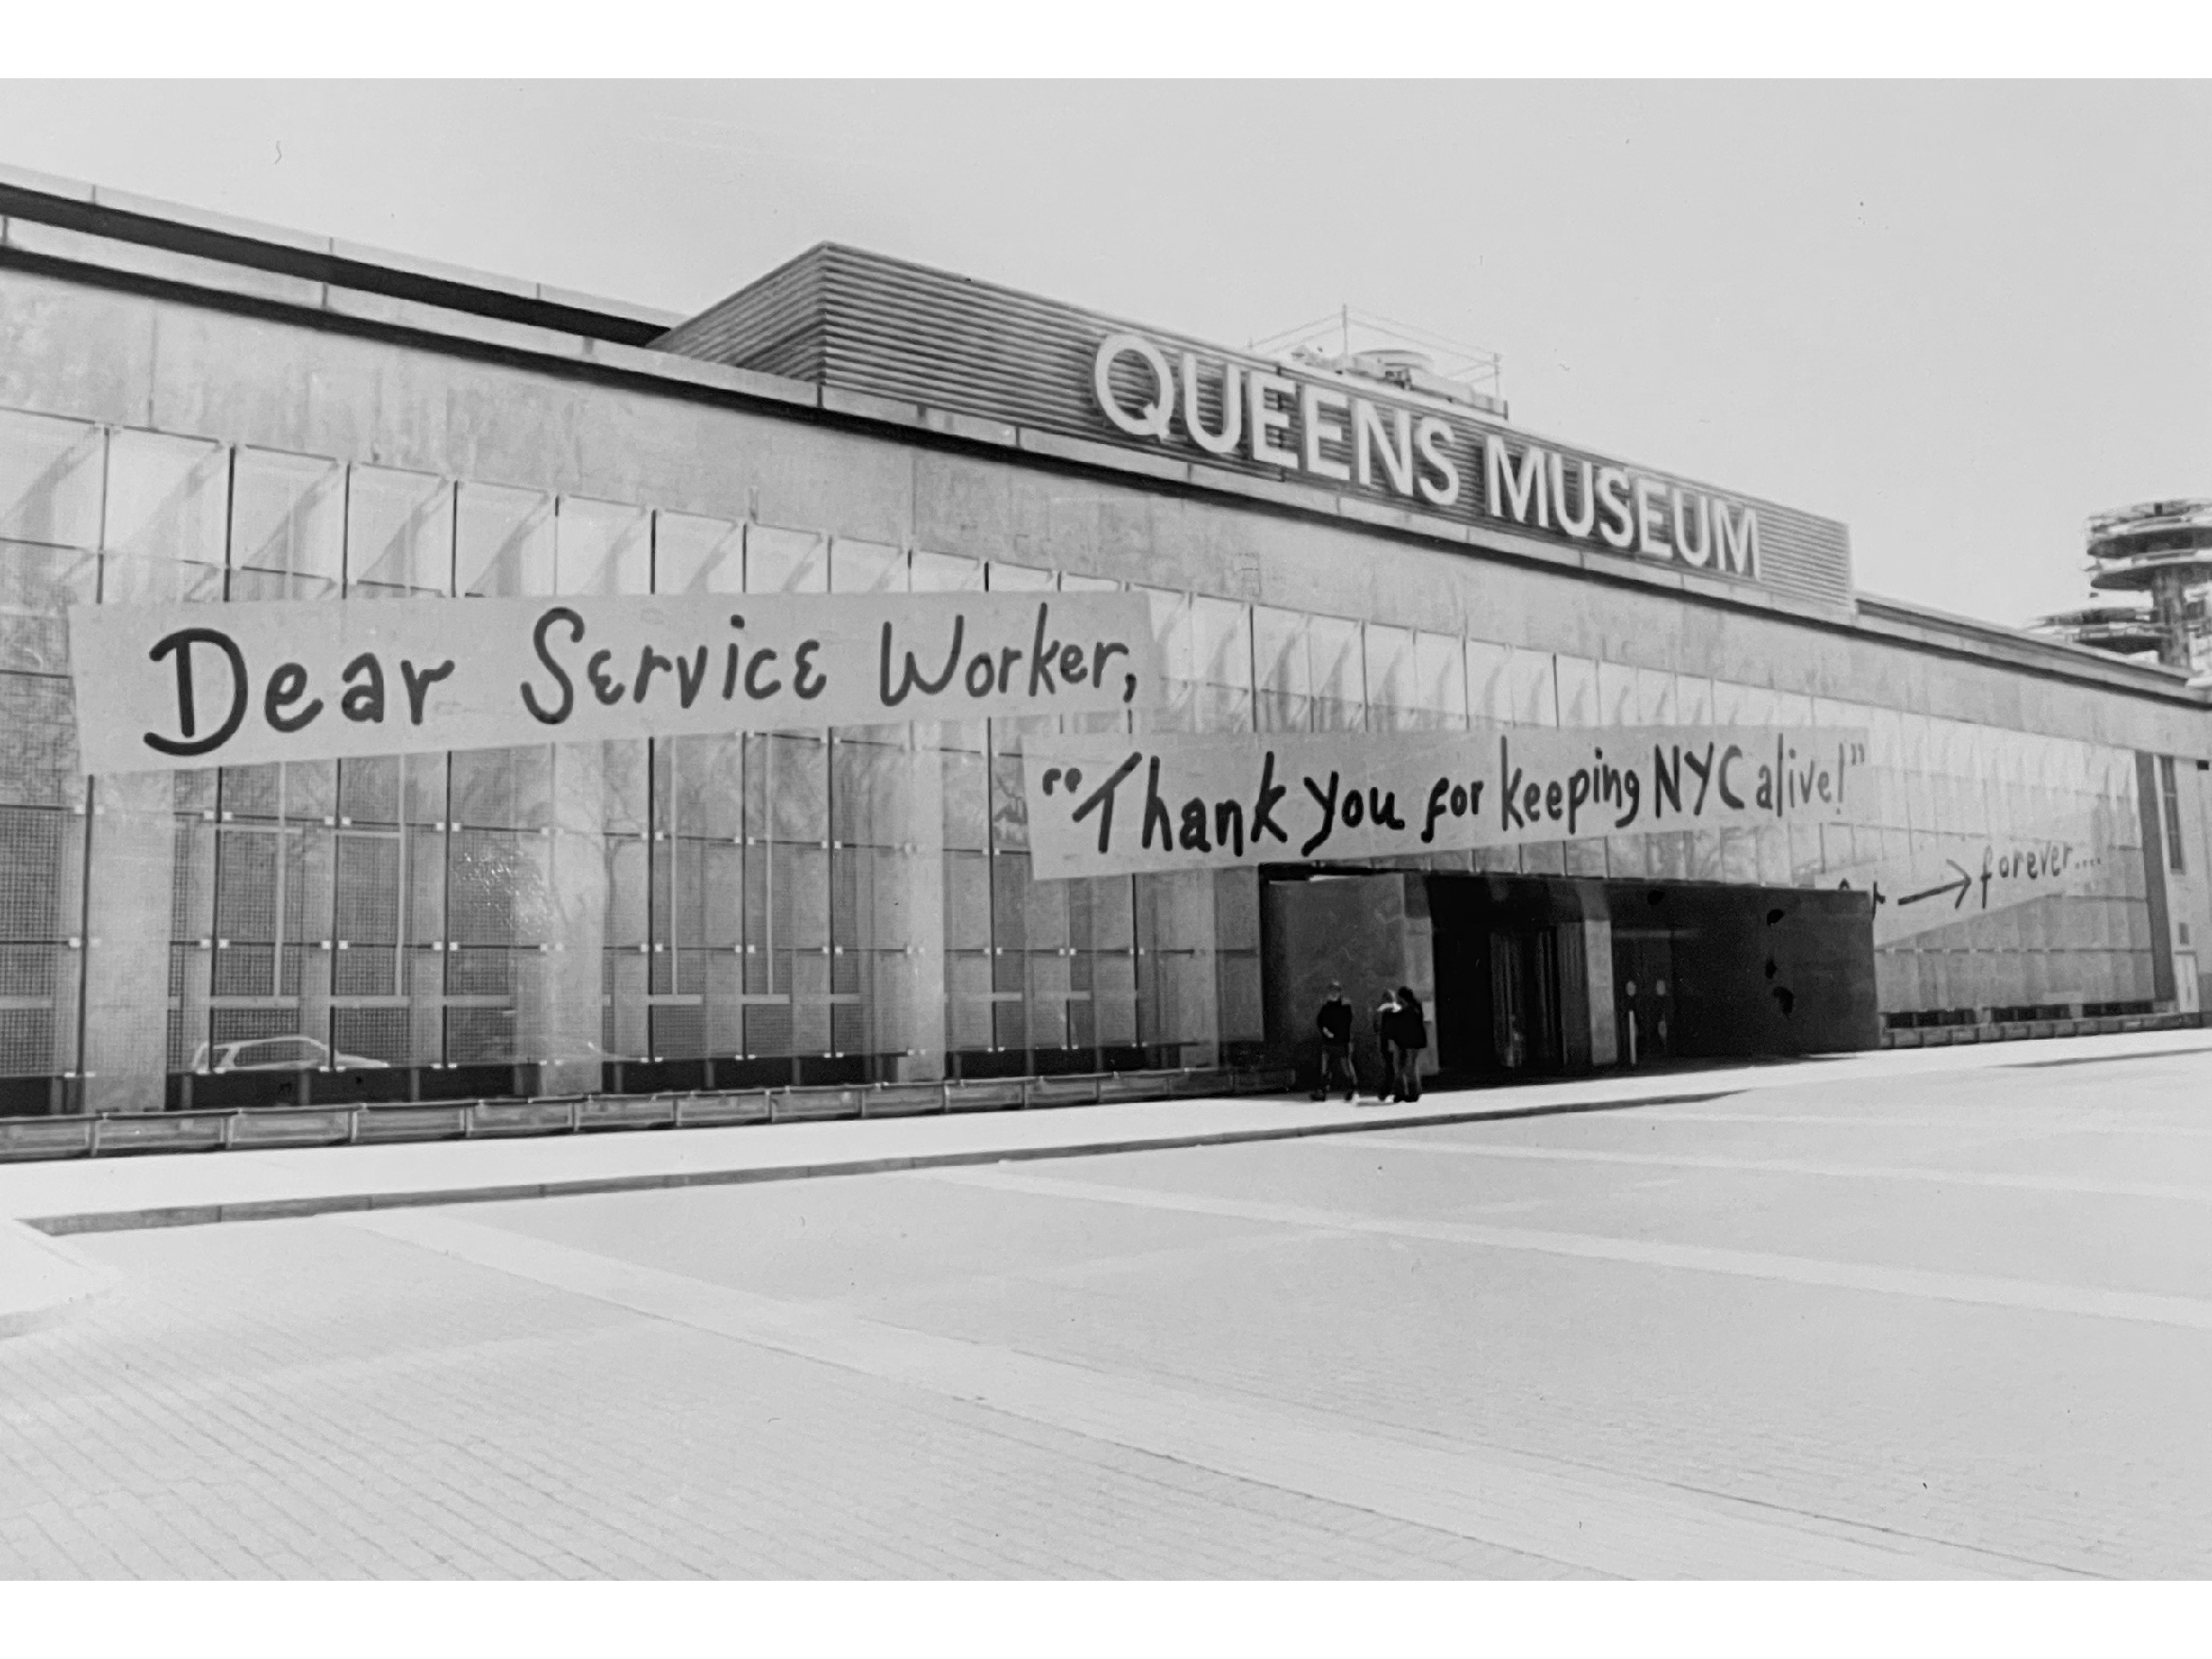 QUEENS MUSEUM
Dear Service Worker,
"Thank you for keeping NYC alive!"
→ forever....